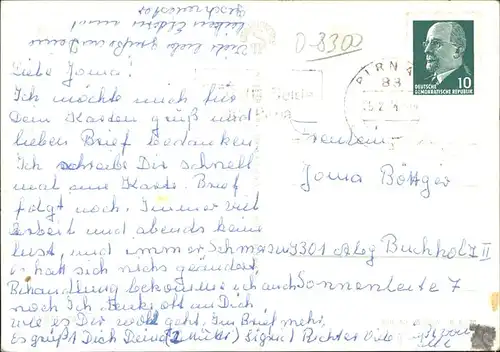 Viele liebe Grüße an Deine
lieben Eltern und
Geschwister
D-8300
PIRNA
83
10
DEUTSCHE
DEMOKRATISCHE REPUBLIK
Liebe Jorna!
Ich möchte mich für
Dein Karten gruß und
lieben Brief bedanken
Ich schreibe Dir schnell
mal eine Karte. Brief
folgt noch. Immer viel
Arbeit und abends keine
lust, und immer Schmerzen
es hat sich nichts geändert,
Behandlung bekomme ich auch
noch Ich denke oft an Dich
wie es Dir wohl geht. Im Brief mehr,
Es grüßt Dich Deine Sigrid Richter
Fräulein
Jorna Böttger
9301 Abg Buchholz II
Sonnenleite 7